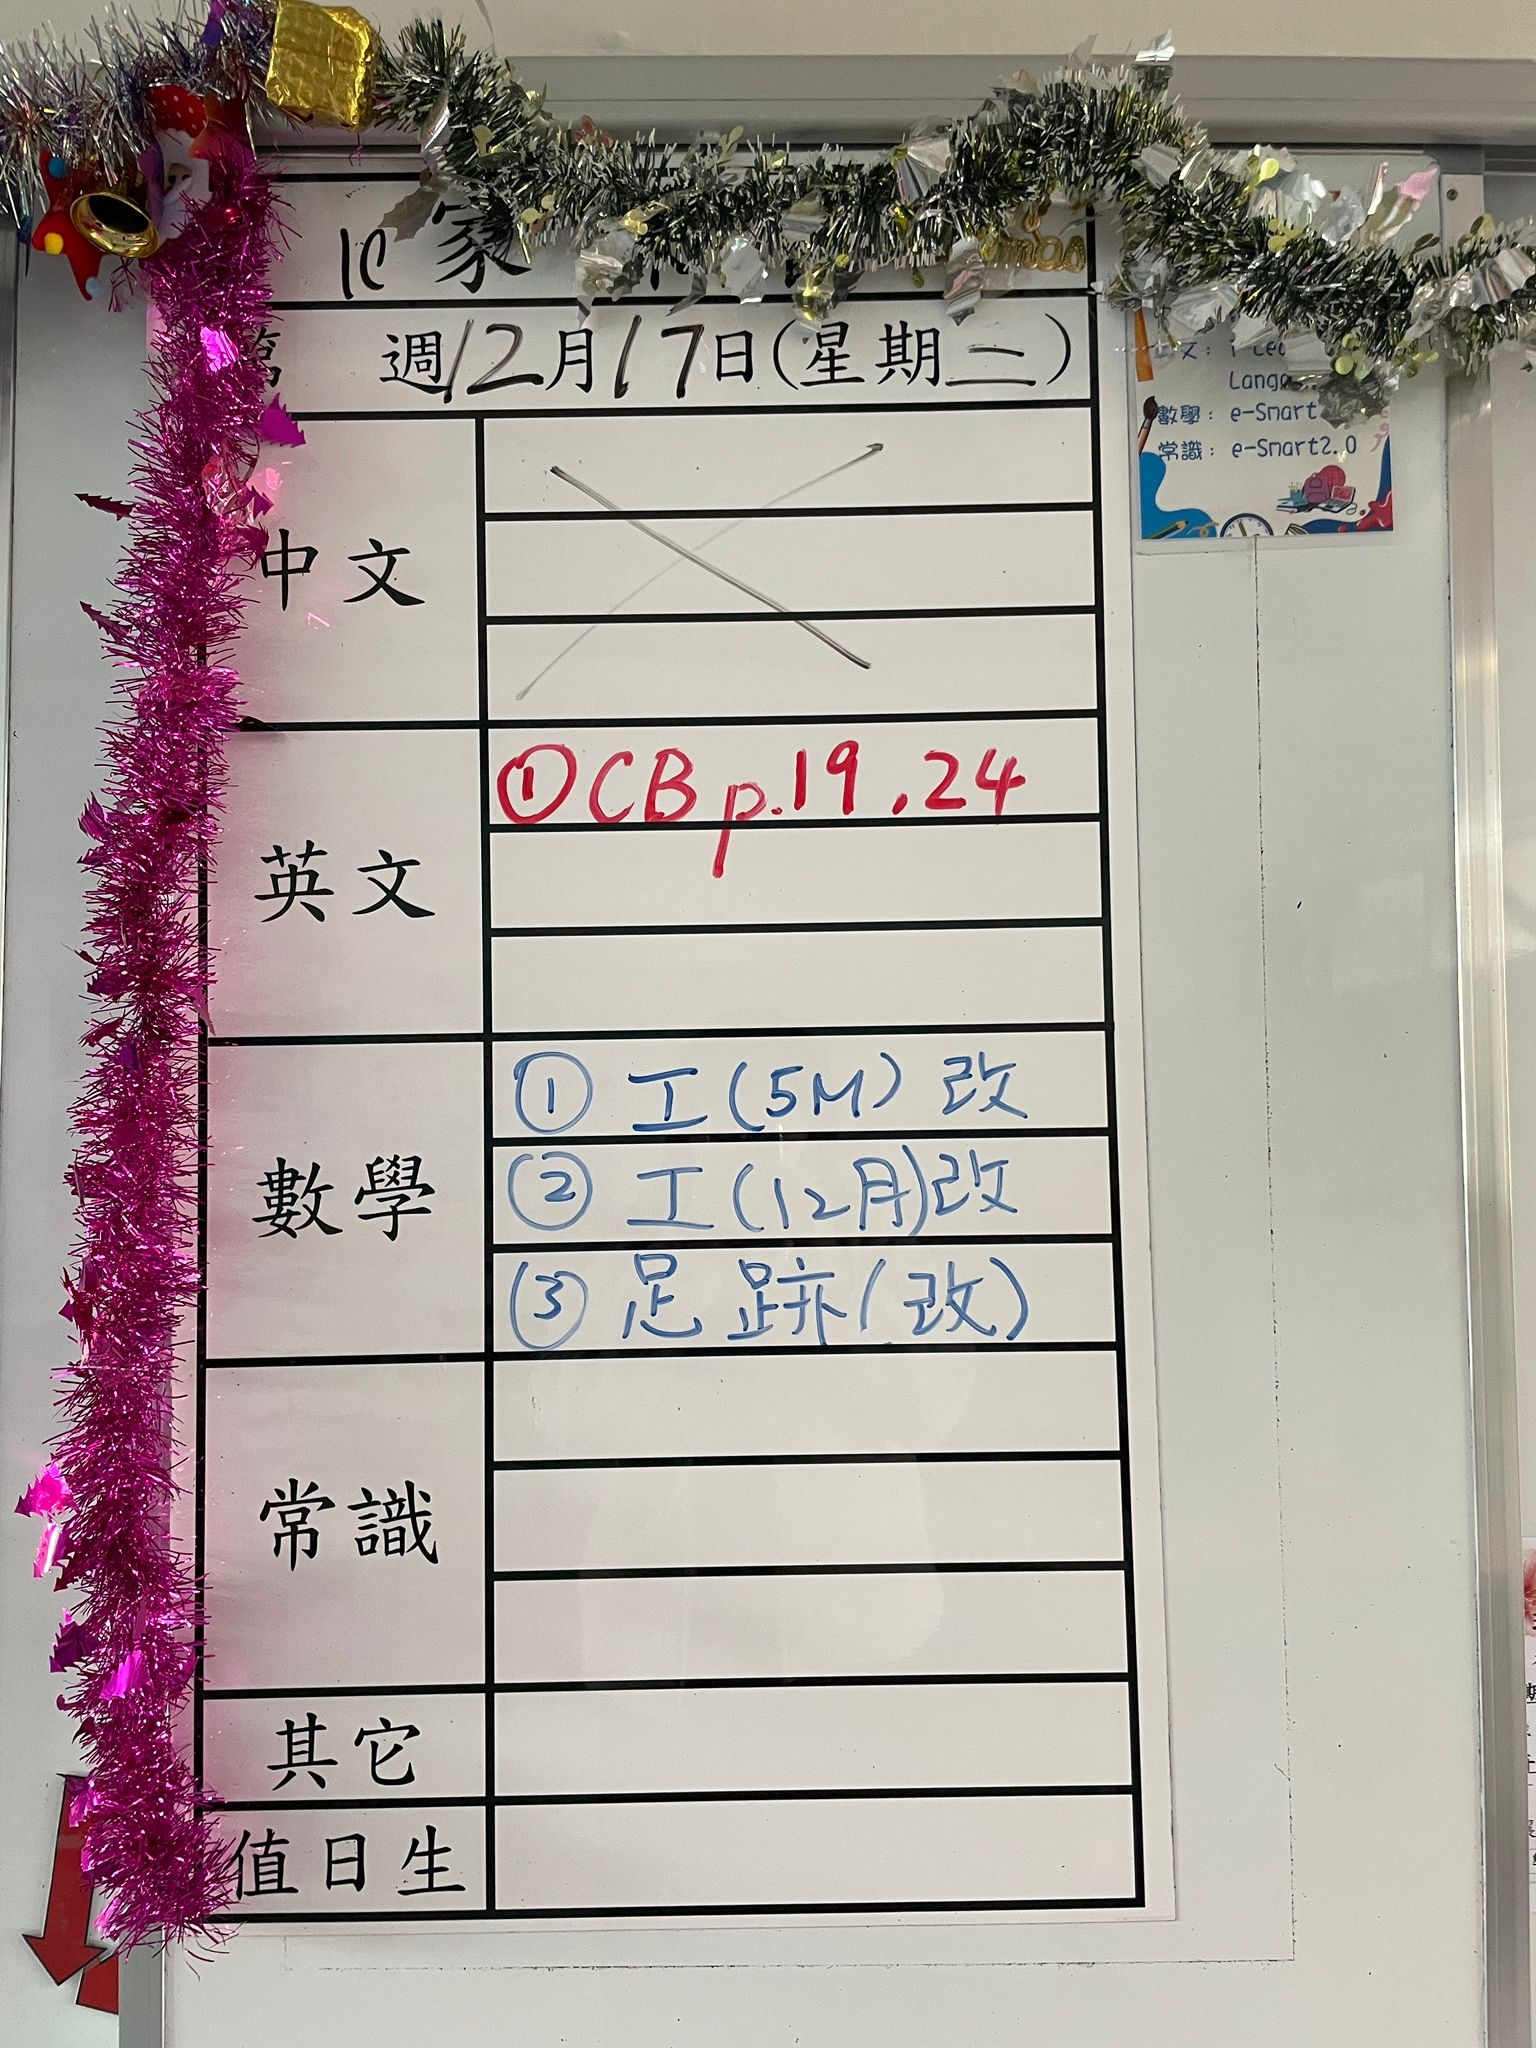 1C 家
第 週 12月17日(星期二)
中文
英文
① CB p.19, 24
數學
① 工(5M) 改
② 工(12月)改
③ 足跡(改)
常識
其它
值日生
文:
數學: e-Smart
常識: e-Smart2.0